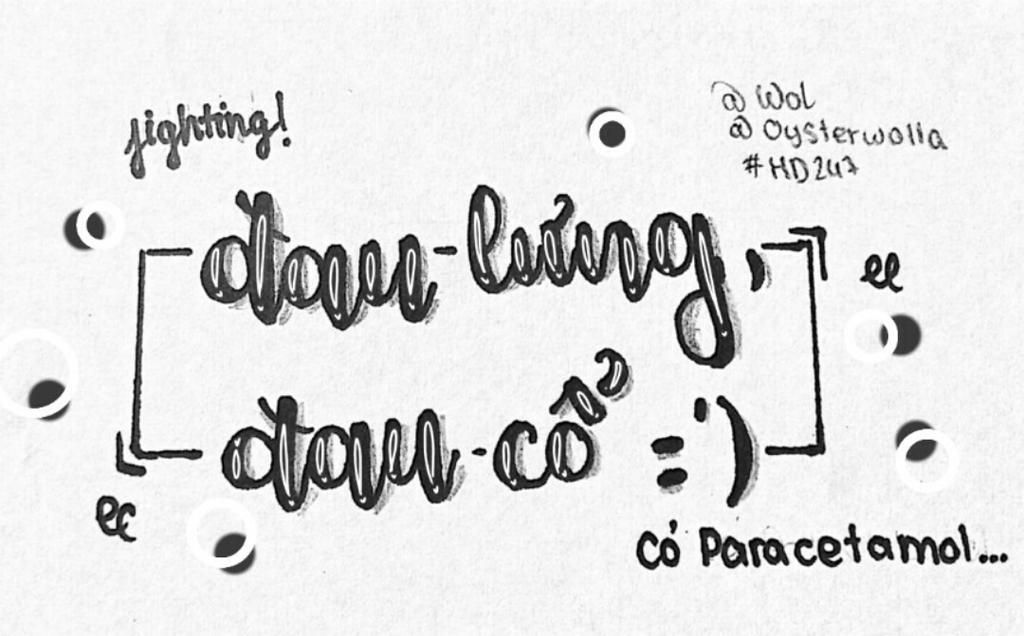 fighting!
@ Wol
@ Oysterwolia
# HD247
đau lưng,
đau cổ =')
có Paracetamol...